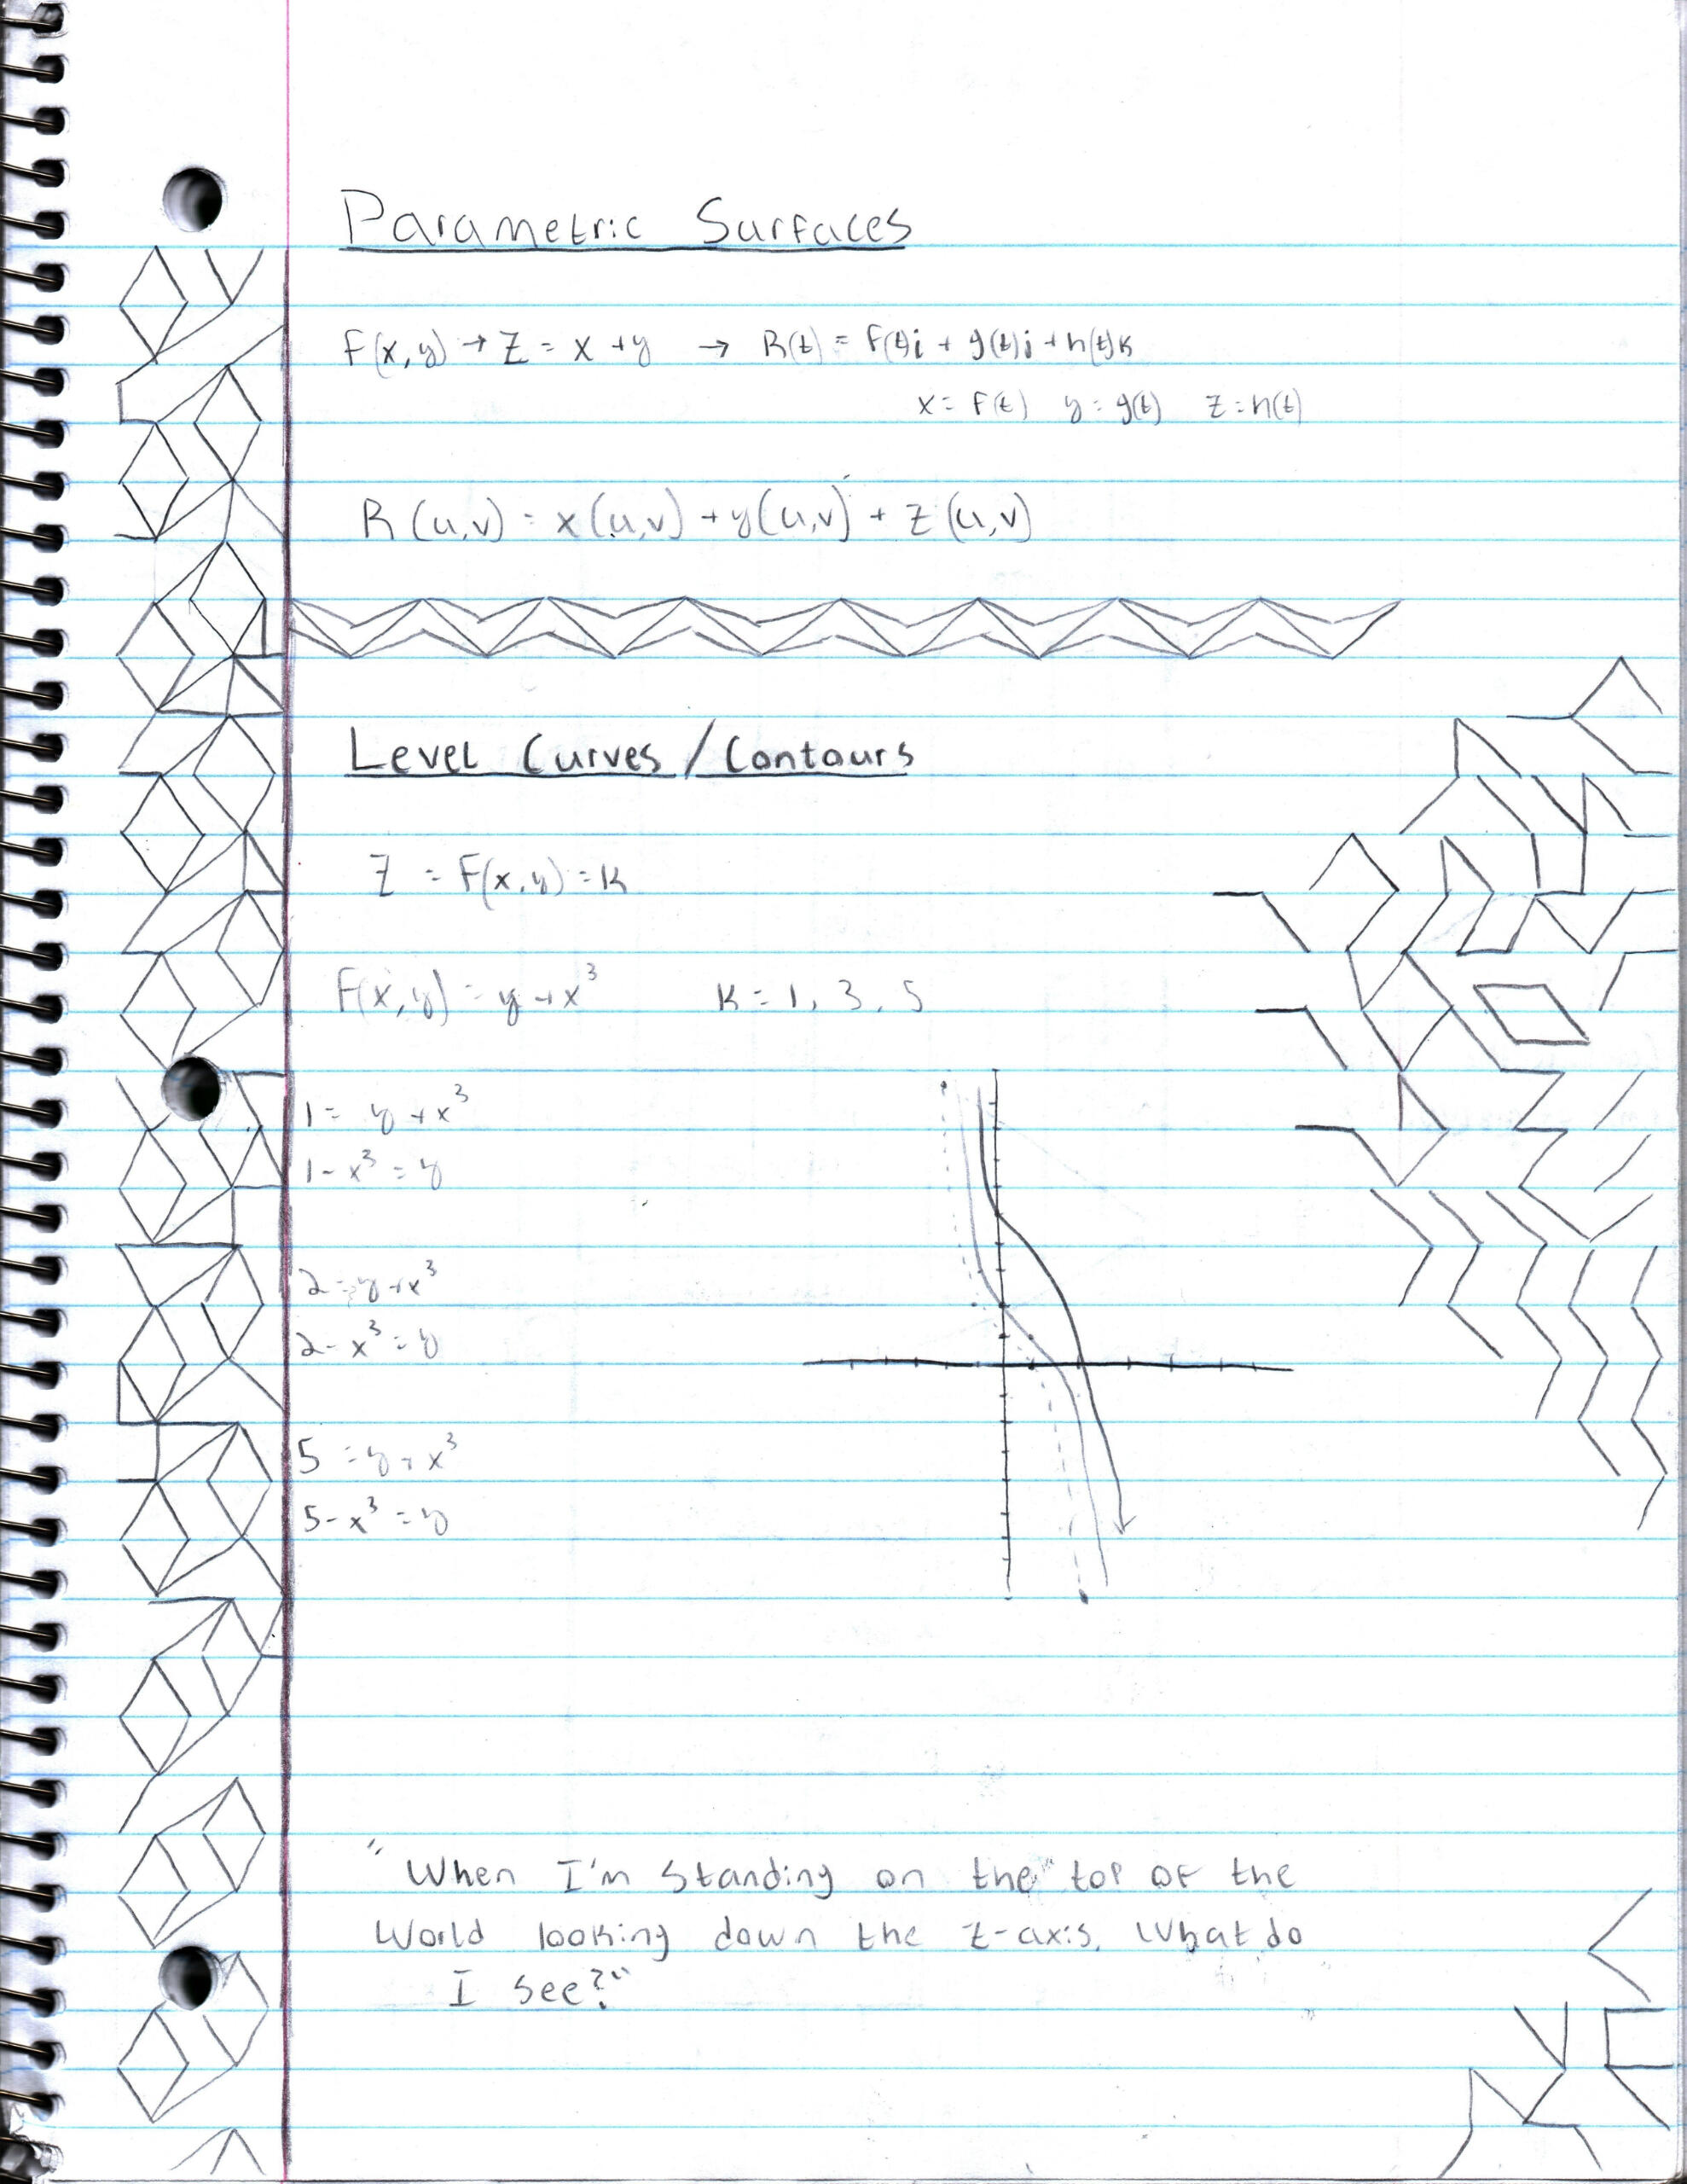 Parametric Surfaces
F(x,y) → Z = x + y → R(t) = F(t)i + g(t)j + h(t)k
x = F(t) y = g(t) Z = h(t)
R(u,v) = x(u,v) + y(u,v) + Z(u,v)
Level Curves / Contours
Z = F(x,y) = K
F(x,y) = y + x³ K = 1, 3, 5
1 = y + x³
1 - x³ = y
2 = y + x³
2 - x³ = y
5 = y + x³
5 - x³ = y
"When I'm standing on the "top of the
World looking down the z-axis, What do
I see?"